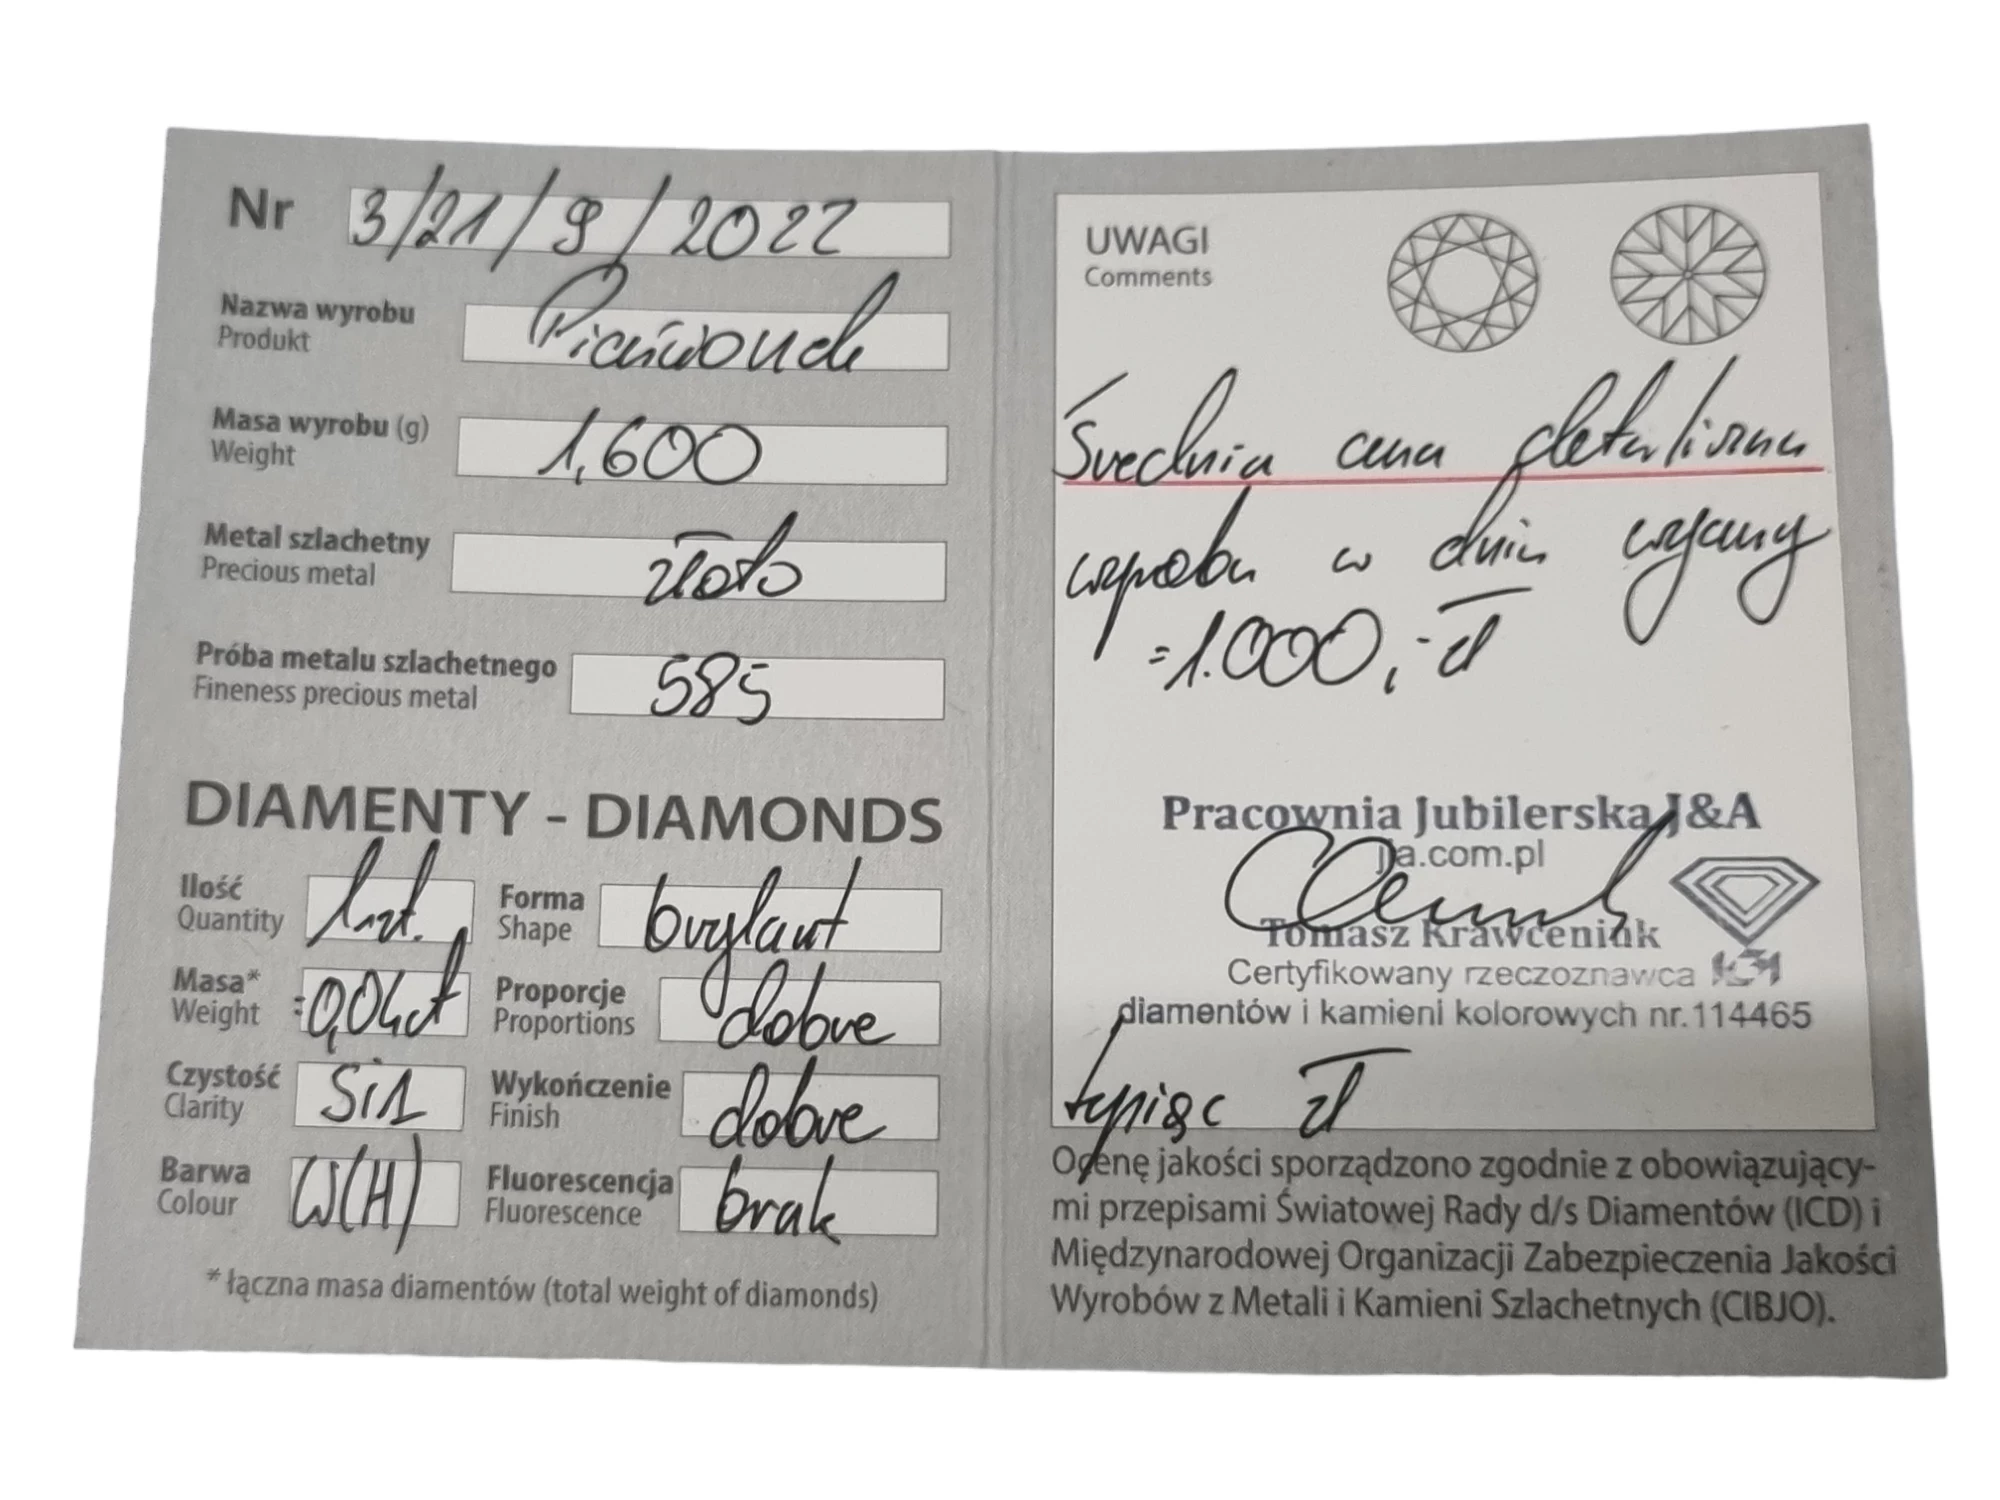 Nr 3/21/9/2022
Nazwa wyrobu
Produkt
Pierścionek
Masa wyrobu (g) 1,600
Weight
Metal szlachetny złoto
Precious metal
Próba metalu szlachetnego 585
Fineness precious metal
DIAMENTY - DIAMONDS
Ilość 1szt. Forma brylant
Quantity Shape
Masa* =0,04ct Proporcje dobre
Weight Proportions
Czystość Si1 Wykończenie dobre
Clarity Finish
Barwa W(H) Fluorescencja brak
Colour Fluorescence
* łączna masa diamentów (total weight of diamonds)
UWAGI
Comments
Średnia cena detaliczna
wyrobu w dniu wyceny
=1.000,-zł
Pracownia Jubilerska J&A
jja.com.pl
Tomasz Krawceniuk
Certyfikowany rzeczoznawca
diamentów i kamieni kolorowych nr.114465
tysiąc zł
Ocenę jakości sporządzono zgodnie z obowiązujący-
mi przepisami Światowej Rady d/s Diamentów (ICD) i
Międzynarodowej Organizacji Zabezpieczenia Jakości
Wyrobów z Metali i Kamieni Szlachetnych (CIBJO).